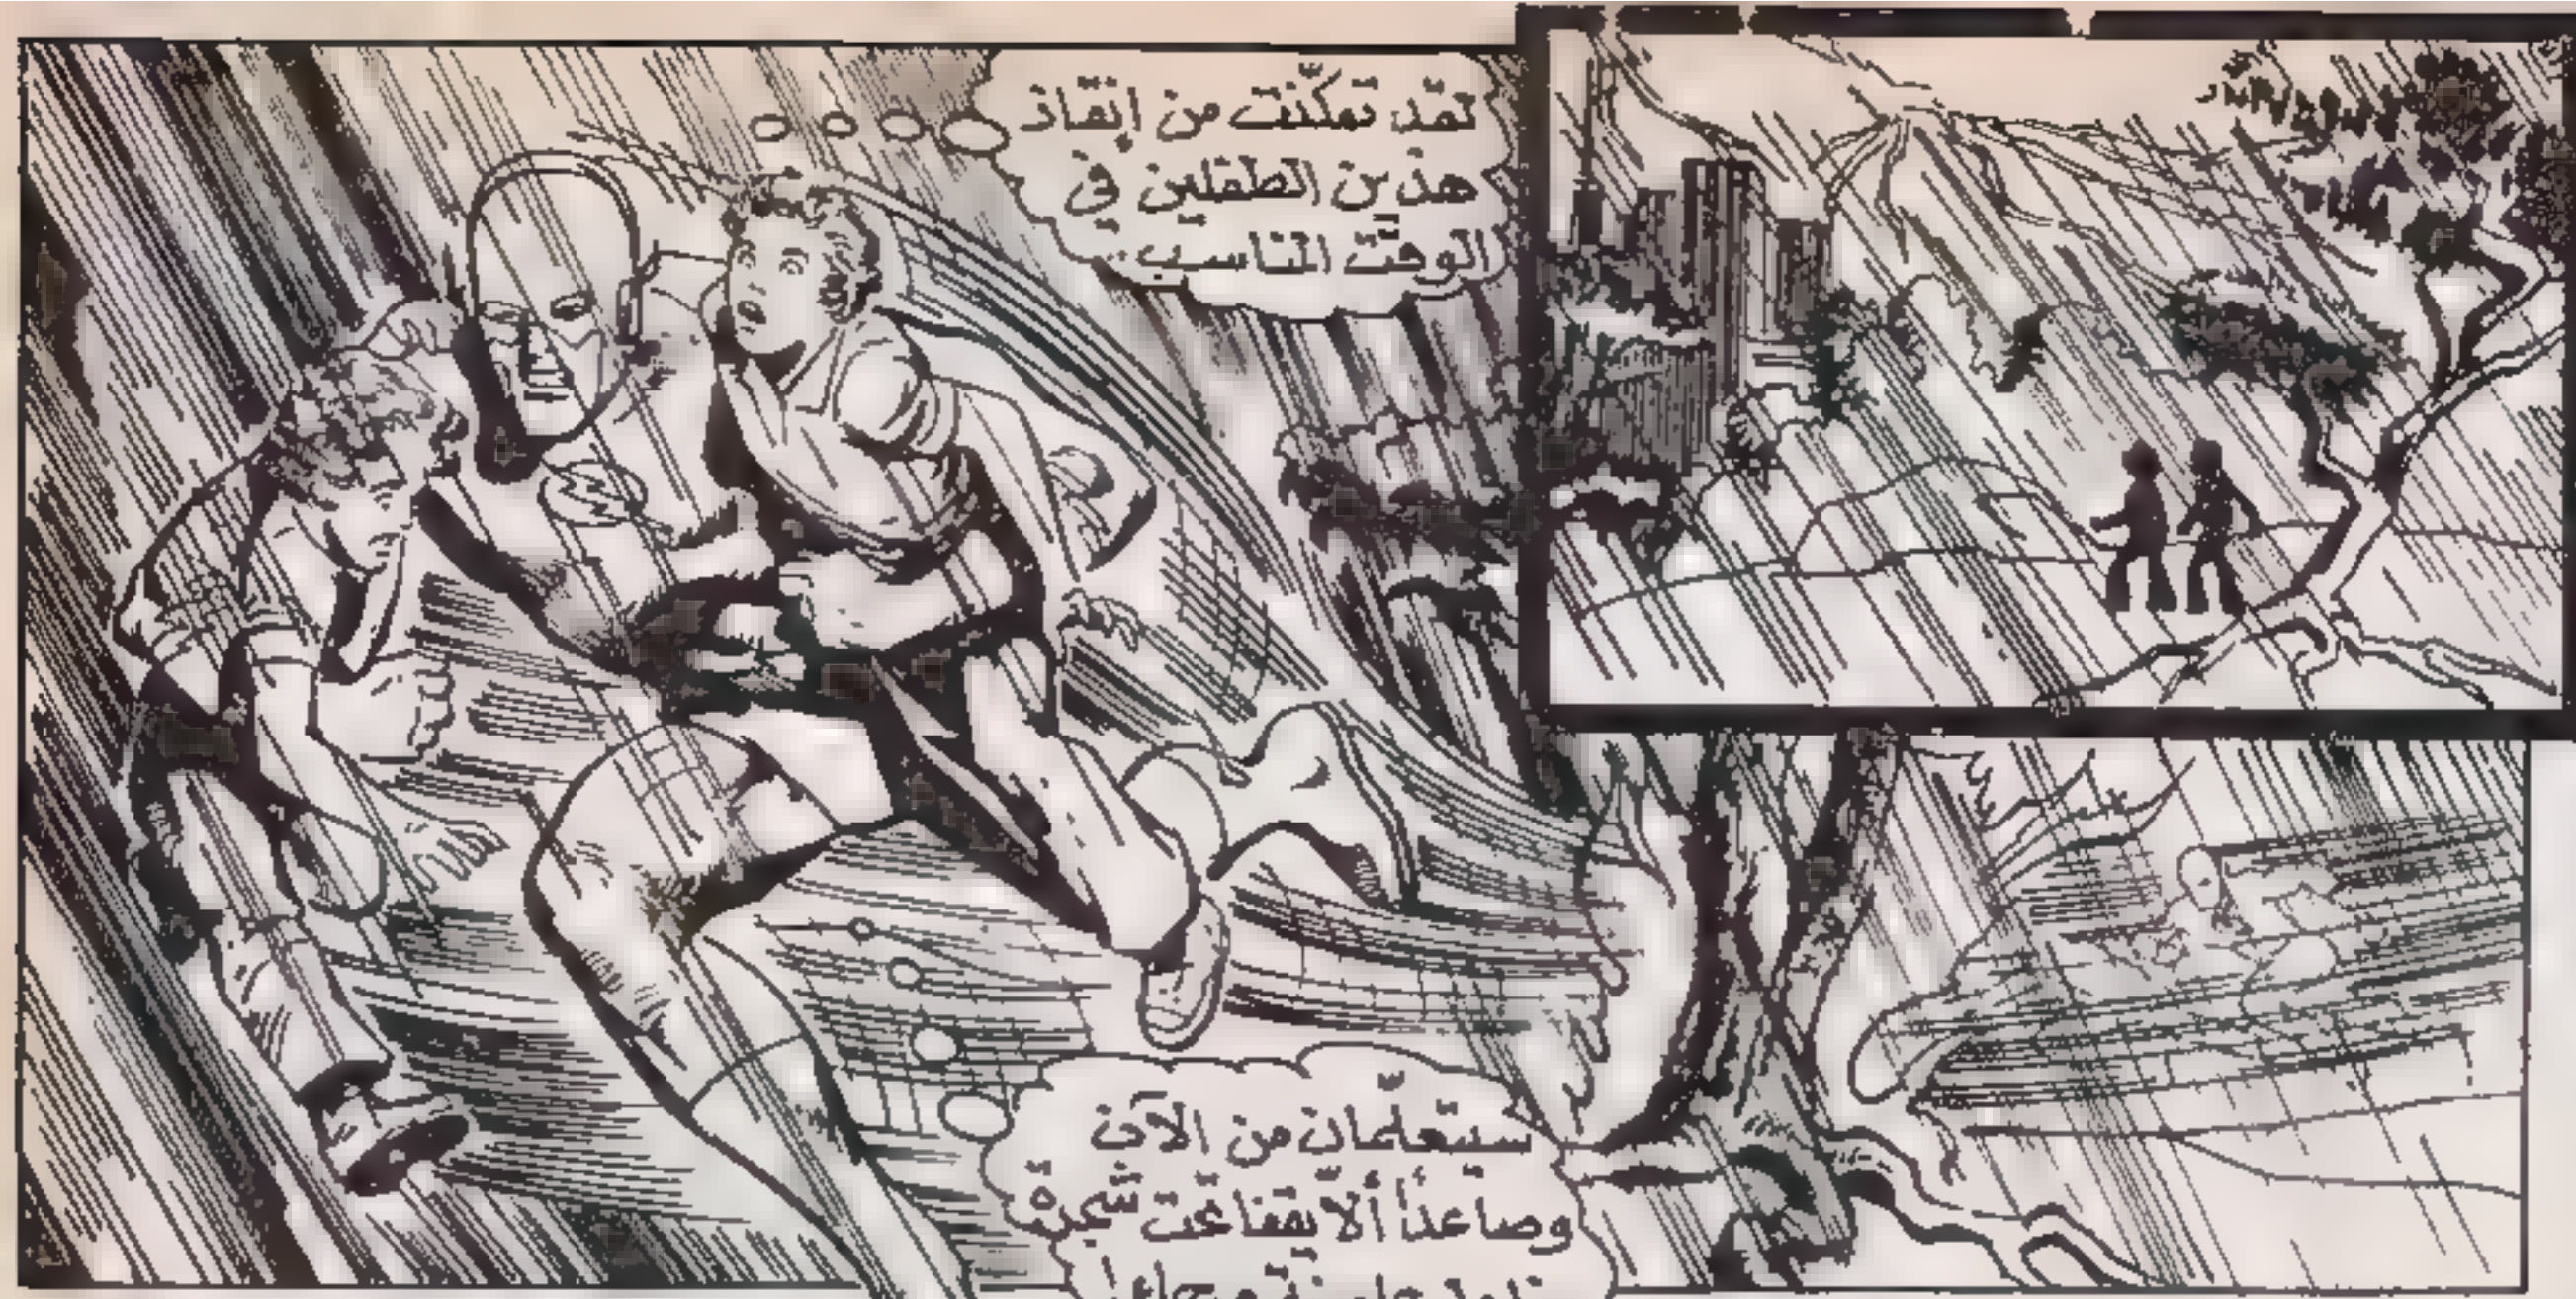 لقد تمكنت من إنقاذ
هذين الطفلين في
الوقت المناسب..
ستتعلمان من الآن
وصاعدًا ألّا تقفا تحت شجرة